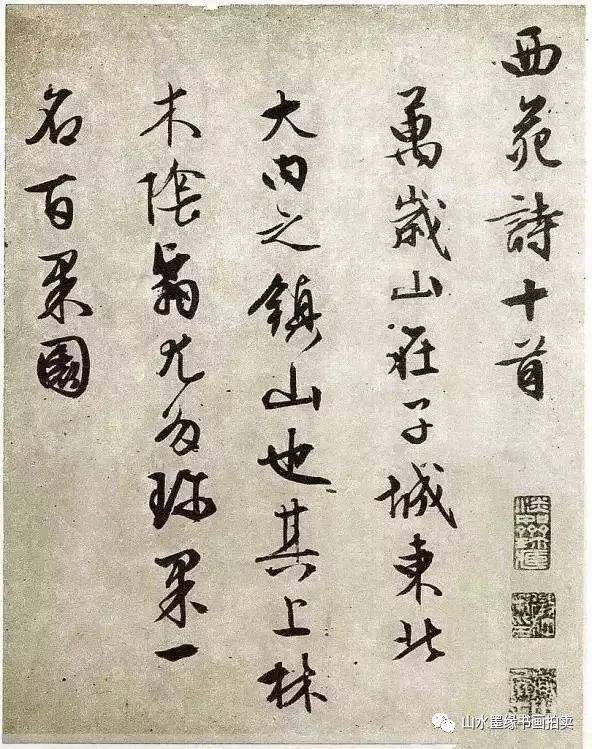 西苑詩十首
萬歲山在子城東北
大内之鎮山也其上林
木陰翳尤多珍果一
名百果園
山水墨缘书画拍卖